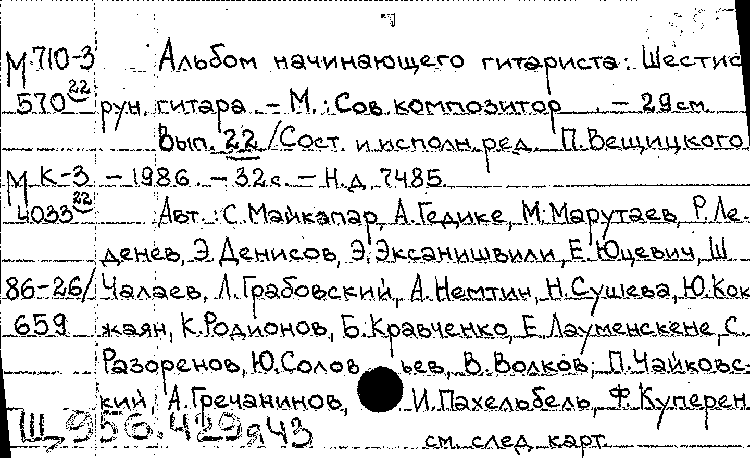 М 710-3 Альбом начинающего гитариста: Шестис
570 22 рун. гитара. – М.: Сов. композитор . – 29 см.
Вып. 22 / Сост. и исполн. ред. П. Вещицкого
М К-3 – 1986. – 32 с. – Н.д. 7485
4033 22 Авт.: С. Майкапар, А. Гедике, М. Марутаев, Р. Ле-
денев, Э. Денисов, Э. Эксанишвили, Е. Юцевич, Ш
86-26/ Чалаев, Л. Грабовский, А. Немтин, Н. Сушева, Ю. Кок
659 жаян, К. Родионов, Б. Кравченко, Е. Лауменскене, С.
Разоренов, Ю. Солов ьев, В. Волков, П. Чайковс-
кий, А. Гречанинов, И. Пахельбель, Ф. Куперен
Щ 956.429я43 см. след. карт.